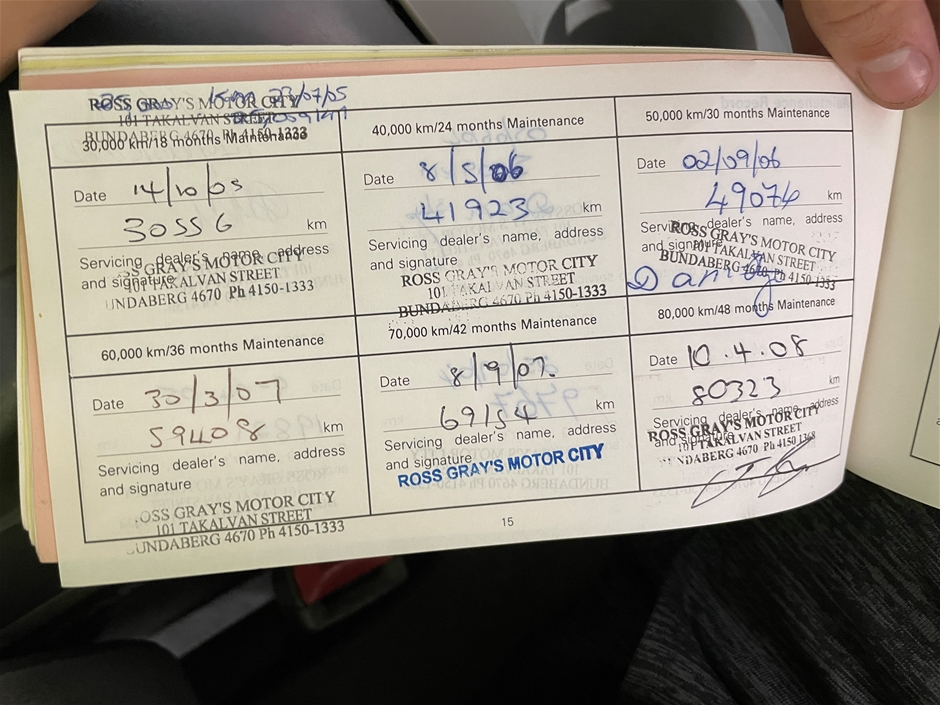 23/07/05
ROSS GRAY'S MOTOR CITY
101 TAKALVAN STREET
BUNDABERG 4670 Ph 4150-1333
30,000 km/18 months Maintenance
Date 14/10/05
30556 km
Servicing dealer's name, address
and signature
ROSS GRAY'S MOTOR CITY
101 TAKALVAN STREET
UNDABERG 4670 Ph 4150-1333
40,000 km/24 months Maintenance
Date 8/5/06
41923 km
Servicing dealer's name, address
and signature
ROSS GRAY'S MOTOR CITY
101 TAKALVAN STREET
BUNDABERG 4670 Ph 4150-1333
50,000 km/30 months Maintenance
Date 02/09/06
49074 km
Servicing dealer's name, address
and signature
ROSS GRAY'S MOTOR CITY
101 TAKALVAN STREET
BUNDABERG 4670 Ph 4150-1333
60,000 km/36 months Maintenance
Date 30/3/07
59408 km
Servicing dealer's name, address
and signature
OSS GRAY'S MOTOR CITY
101 TAKALVAN STREET
UNDABERG 4670 Ph 4150-1333
70,000 km/42 months Maintenance
Date 8/9/07.
69154 km
Servicing dealer's name, address
and signature
ROSS GRAY'S MOTOR CITY
80,000 km/48 months Maintenance
Date 10.4.08
80323 km
Servicing dealer's name, address
and signature
ROSS GRAY'S MOTOR CITY
101 TAKALVAN STREET
UNDABERG 4670 Ph 4150 1368
15